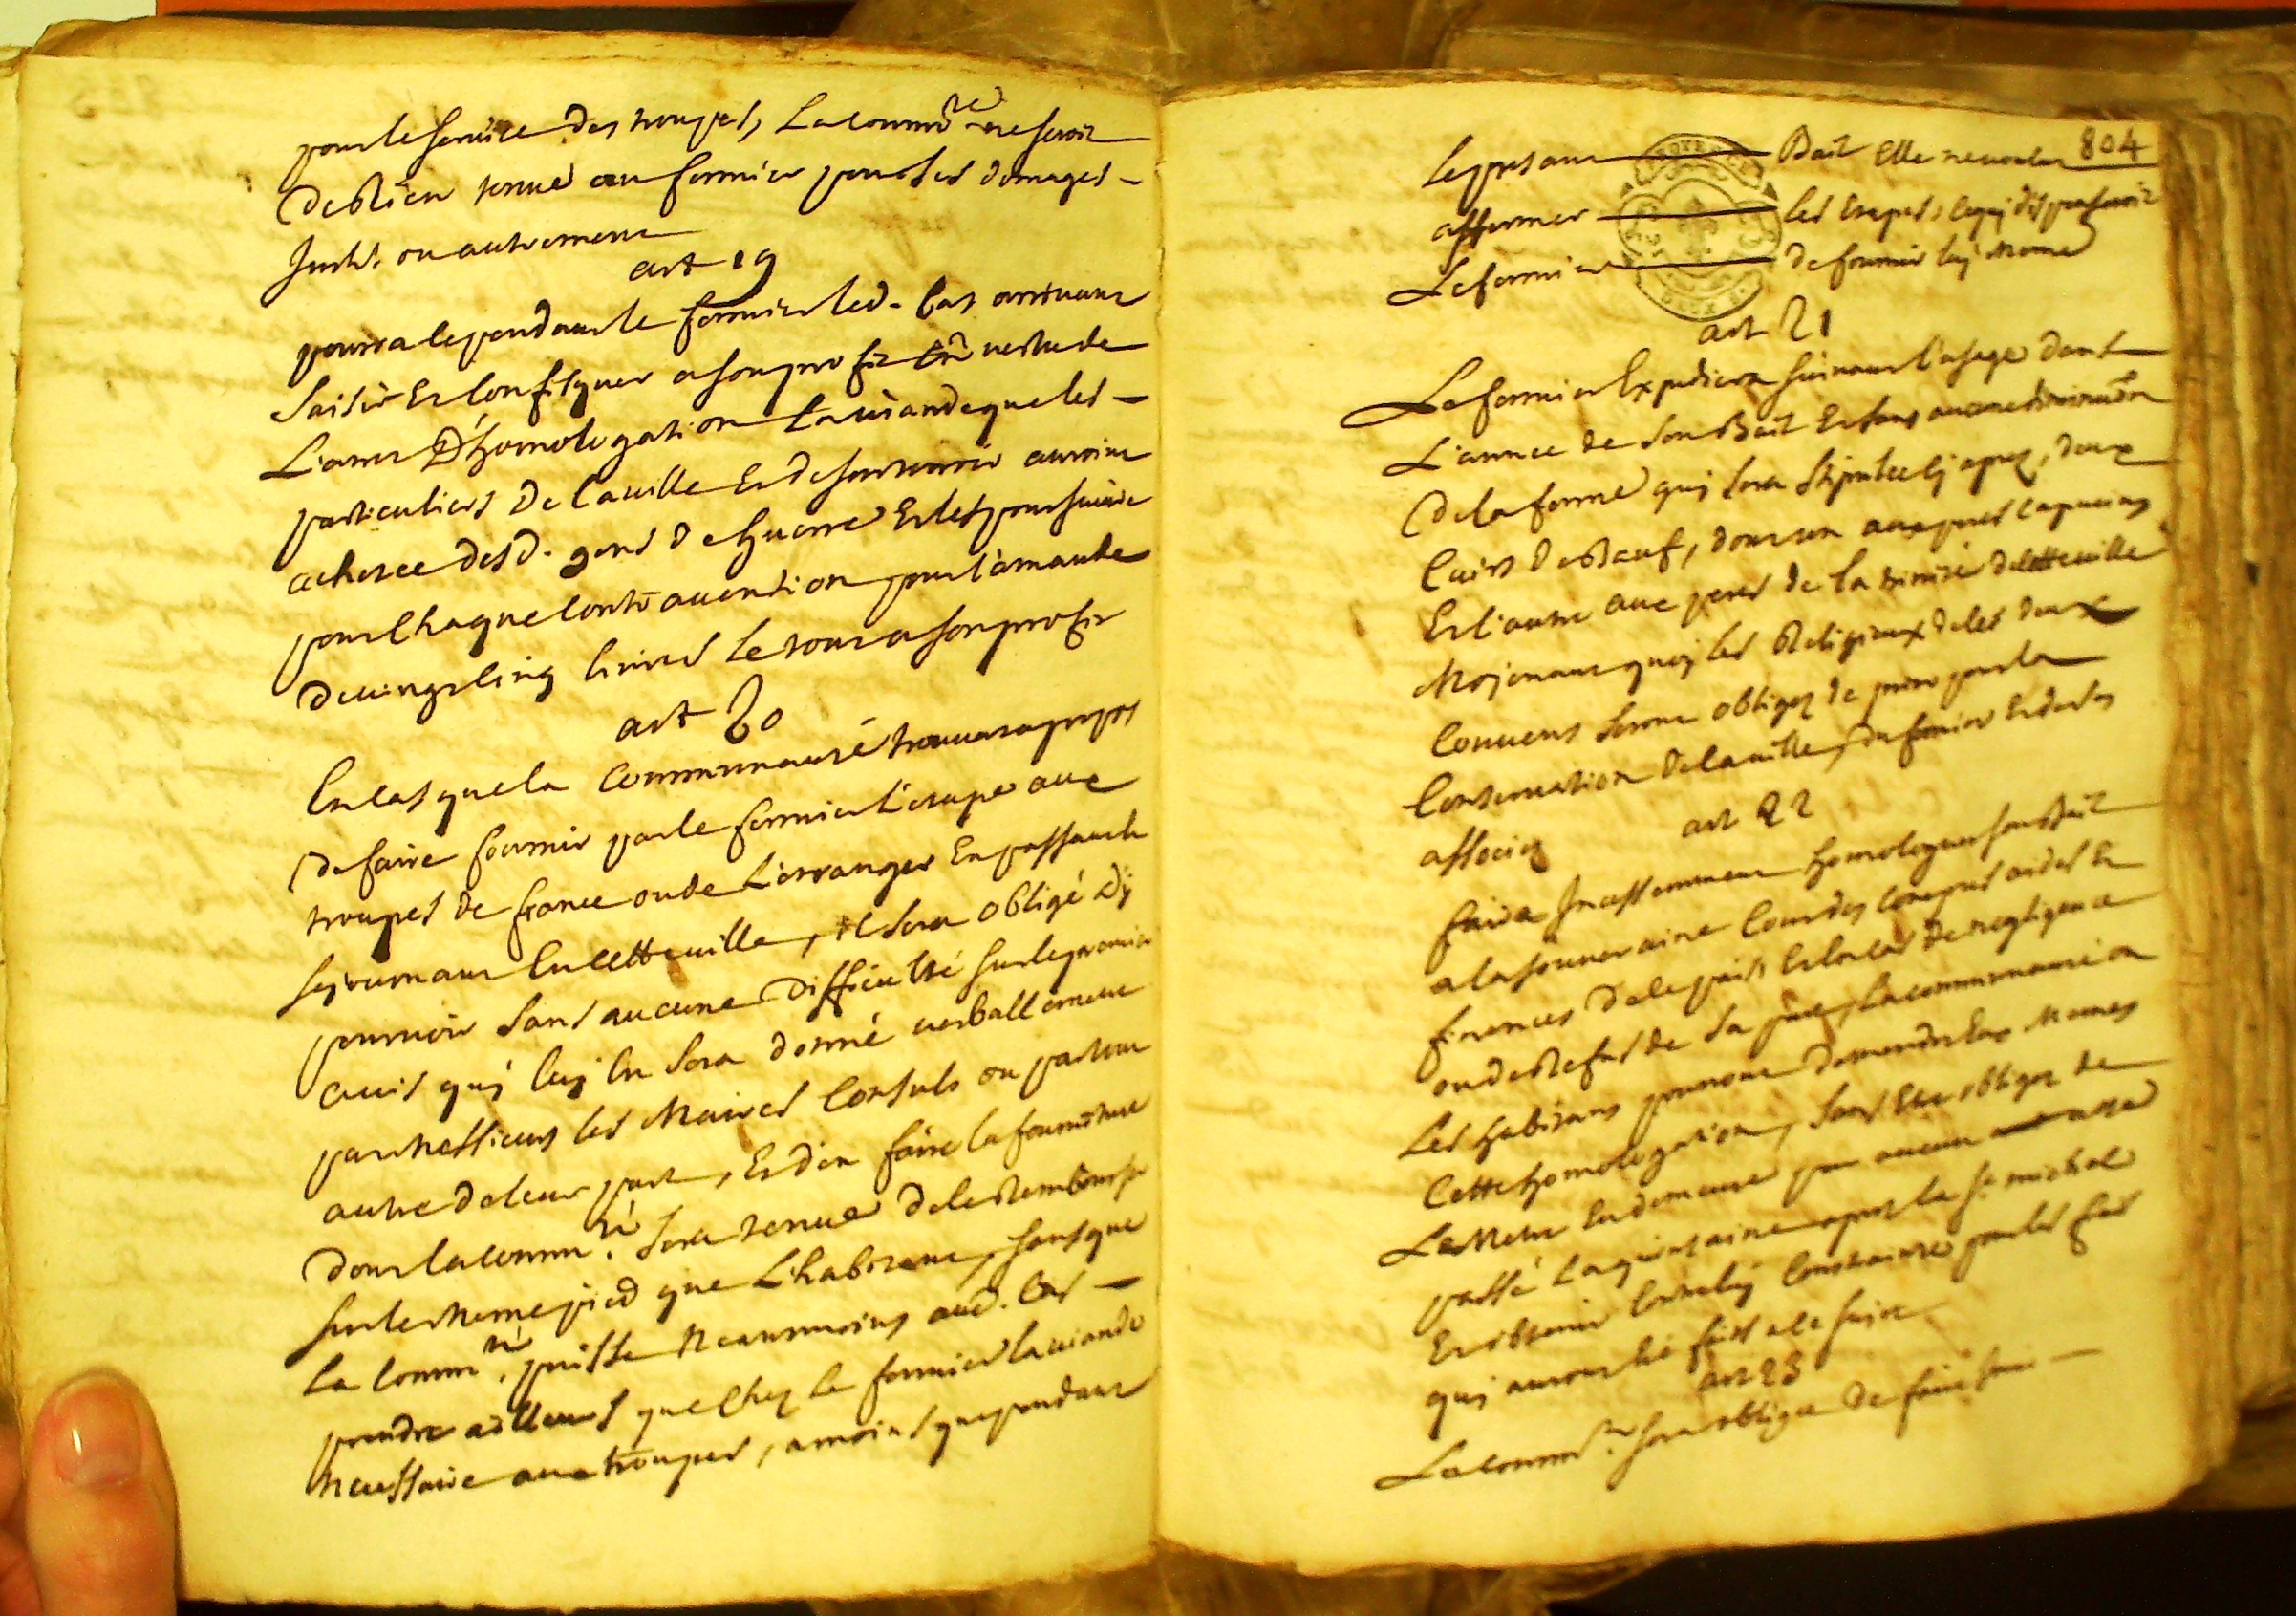 pour le service des troupes, La commté ne seroit
de Rien tenue au fermier pour ses domages
Justs. ou autrement
art 19
pourra cependant le fermier led. Cas arrivant
saisir Et Confisquer a son profit En vertu de
L'arret D'homologation La viande que les
particuliers De la ville Et de son terroir auroint
achetee desd. gens De guerre Et les poursuivre
pour Chaque Contravention pour l'amande
de vingt cinq livres Le tout a son profit
art 20
En cas que la Communauté trouvera a propos
De faire fournir par le fermier L'etape aux
troupes de france ou de L'etranger En passant
sejournant En cette ville, il sera obligé d'y
pourvoir sans aucune difficulté sur le premier
avis quj luj En sera donné verballement
par messieurs les Maires Consuls ou par tout
autre de leur part, Et d'en faire la fourniture
dont la commté. sera tenue de le Rembourser
sur le meme pied que L'habitant, sans que
La Commté. puisse Neanmoins aud. Cas
prendre ailleurs que Chez Le fermier la viande
Necessaire aux troupes, a moins que pendant
804
le present Bail Elle ne voulut
affermer les Etapes, ce quj dispenseroit
Le fermier de fournir luj meme
art 21
Le fermier Expediera suivant l'usage dans
L'année de son Bail Et sans aucune diminution
de la ferme quj sera stipulée cj apres, deux
Cuirs de Bœuf, dont un aux peres capucins
Et l'autre aux peres de la trinité de cette ville
Mojenant quoj les Religieux de ces deux
Couvens seront obligez de prier pour la
Conservation de la ville, du fermier Et de ses
associez
art 22
faira Incessamment homologuer son Bail
a la souveraine Cour des Comptes aides Et
finances de ce païs Et en cas de negligence
ou de Refus de sa part, La communauté ou
Les habitans pourront demander Eux memes
Cette homologation, sans Etre obligez de
Le Metre En demeure par aucun acte
passé La quinzaine apres la St. michel
Et obtenir Contre luj Contrainte pour les frais
quj auront Eté faits a ce sujet
art 23
La commté. sera obligée de faire